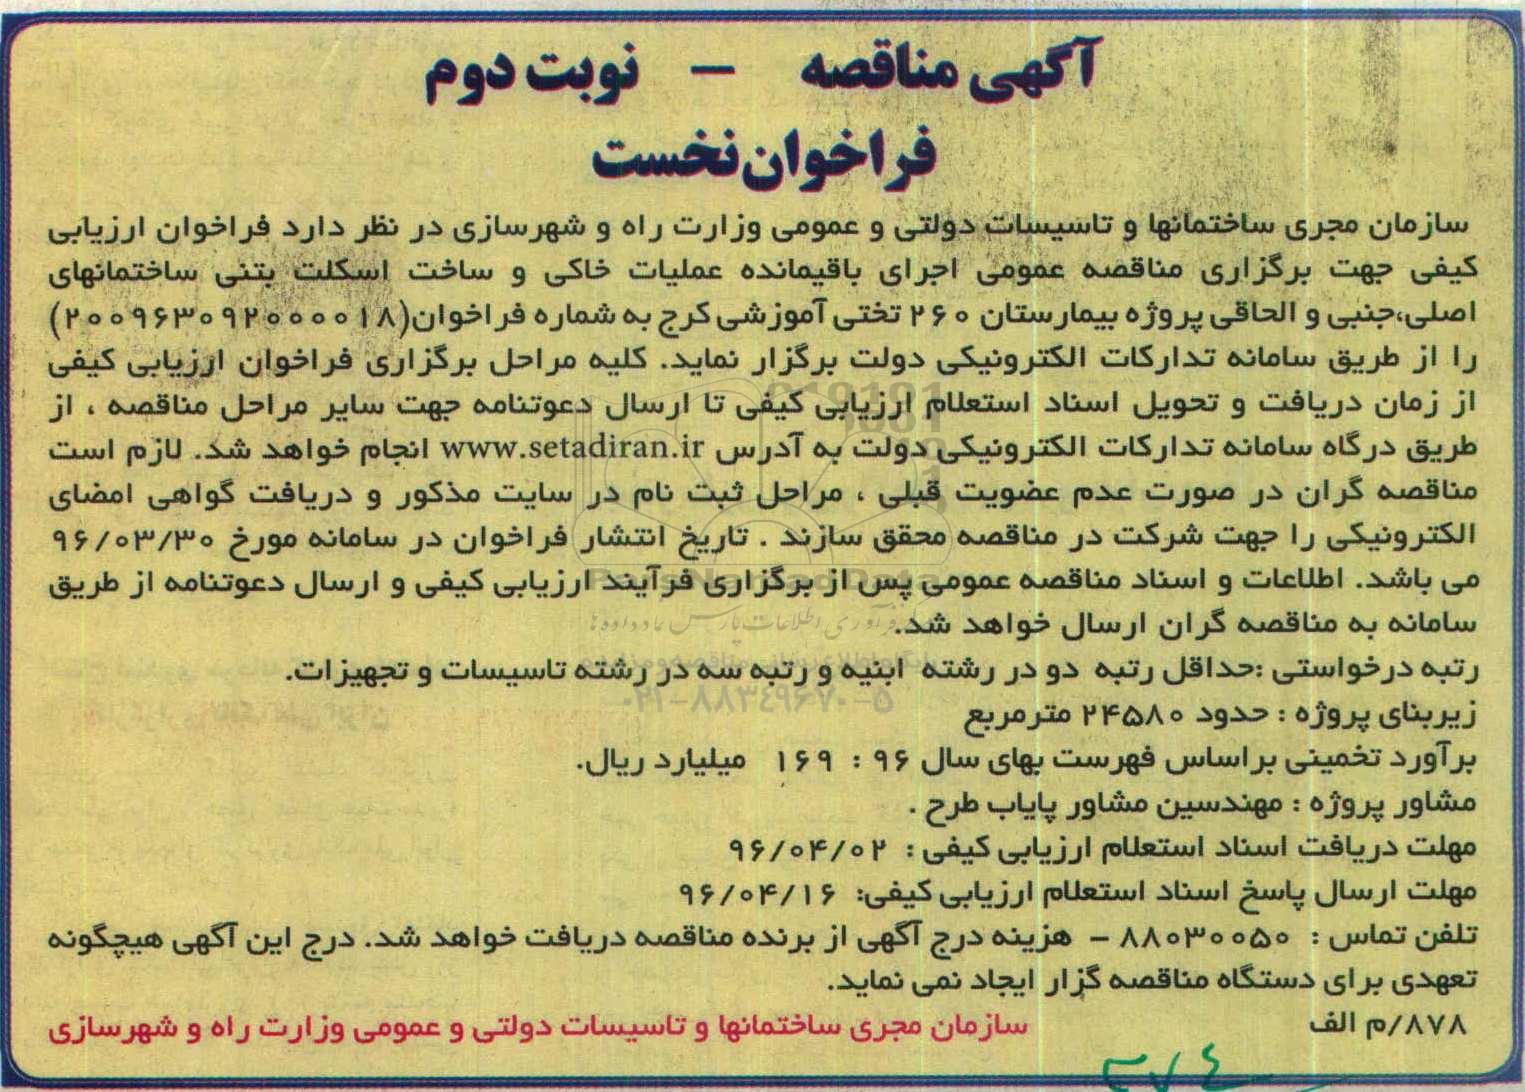 آگهی مناقصه – نوبت دوم
فراخوان نخست
سازمان مجری ساختمانها و تاسیسات دولتی و عمومی وزارت راه و شهرسازی در نظر دارد فراخوان ارزیابی
کیفی جهت برگزاری مناقصه عمومی اجرای باقیمانده عملیات خاکی و ساخت اسکلت بتنی ساختمانهای
اصلی،جنبی و الحاقی پروژه بیمارستان ۲۶۰ تختی آموزشی کرج به شماره فراخوان(۲۰۰۹۶۳۰۹۲۰۰۰۰۱۸)
را از طریق سامانه تدارکات الکترونیکی دولت برگزار نماید. کلیه مراحل برگزاری فراخوان ارزیابی کیفی
از زمان دریافت و تحویل اسناد استعلام ارزیابی کیفی تا ارسال دعوتنامه جهت سایر مراحل مناقصه ، از
طریق درگاه سامانه تدارکات الکترونیکی دولت به آدرس www.setadiran.ir انجام خواهد شد. لازم است
مناقصه گران در صورت عدم عضویت قبلی ، مراحل ثبت نام در سایت مذکور و دریافت گواهی امضای
الکترونیکی را جهت شرکت در مناقصه محقق سازند . تاریخ انتشار فراخوان در سامانه مورخ ۹۶/۰۳/۳۰
می باشد. اطلاعات و اسناد مناقصه عمومی پس از برگزاری فرآیند ارزیابی کیفی و ارسال دعوتنامه از طریق
سامانه به مناقصه گران ارسال خواهد شد.
رتبه درخواستی :حداقل رتبه دو در رشته ابنیه و رتبه سه در رشته تاسیسات و تجهیزات.
زیربنای پروژه : حدود ۲۴۵۸۰ مترمربع
برآورد تخمینی براساس فهرست بهای سال ۹۶ : ۱۶۹ میلیارد ریال.
مشاور پروژه : مهندسین مشاور پایاب طرح .
مهلت دریافت اسناد استعلام ارزیابی کیفی : ۹۶/۰۴/۰۲
مهلت ارسال پاسخ اسناد استعلام ارزیابی کیفی: ۹۶/۰۴/۱۶
تلفن تماس : ۸۸۰۳۰۰۵۰ – هزینه درج آگهی از برنده مناقصه دریافت خواهد شد. درج این آگهی هیچگونه
تعهدی برای دستگاه مناقصه گزار ایجاد نمی نماید.
۸۷۸/م الف
سازمان مجری ساختمانها و تاسیسات دولتی و عمومی وزارت راه و شهرسازی
۰۲۱-۸۸۳۴۹۶۷۰-۵